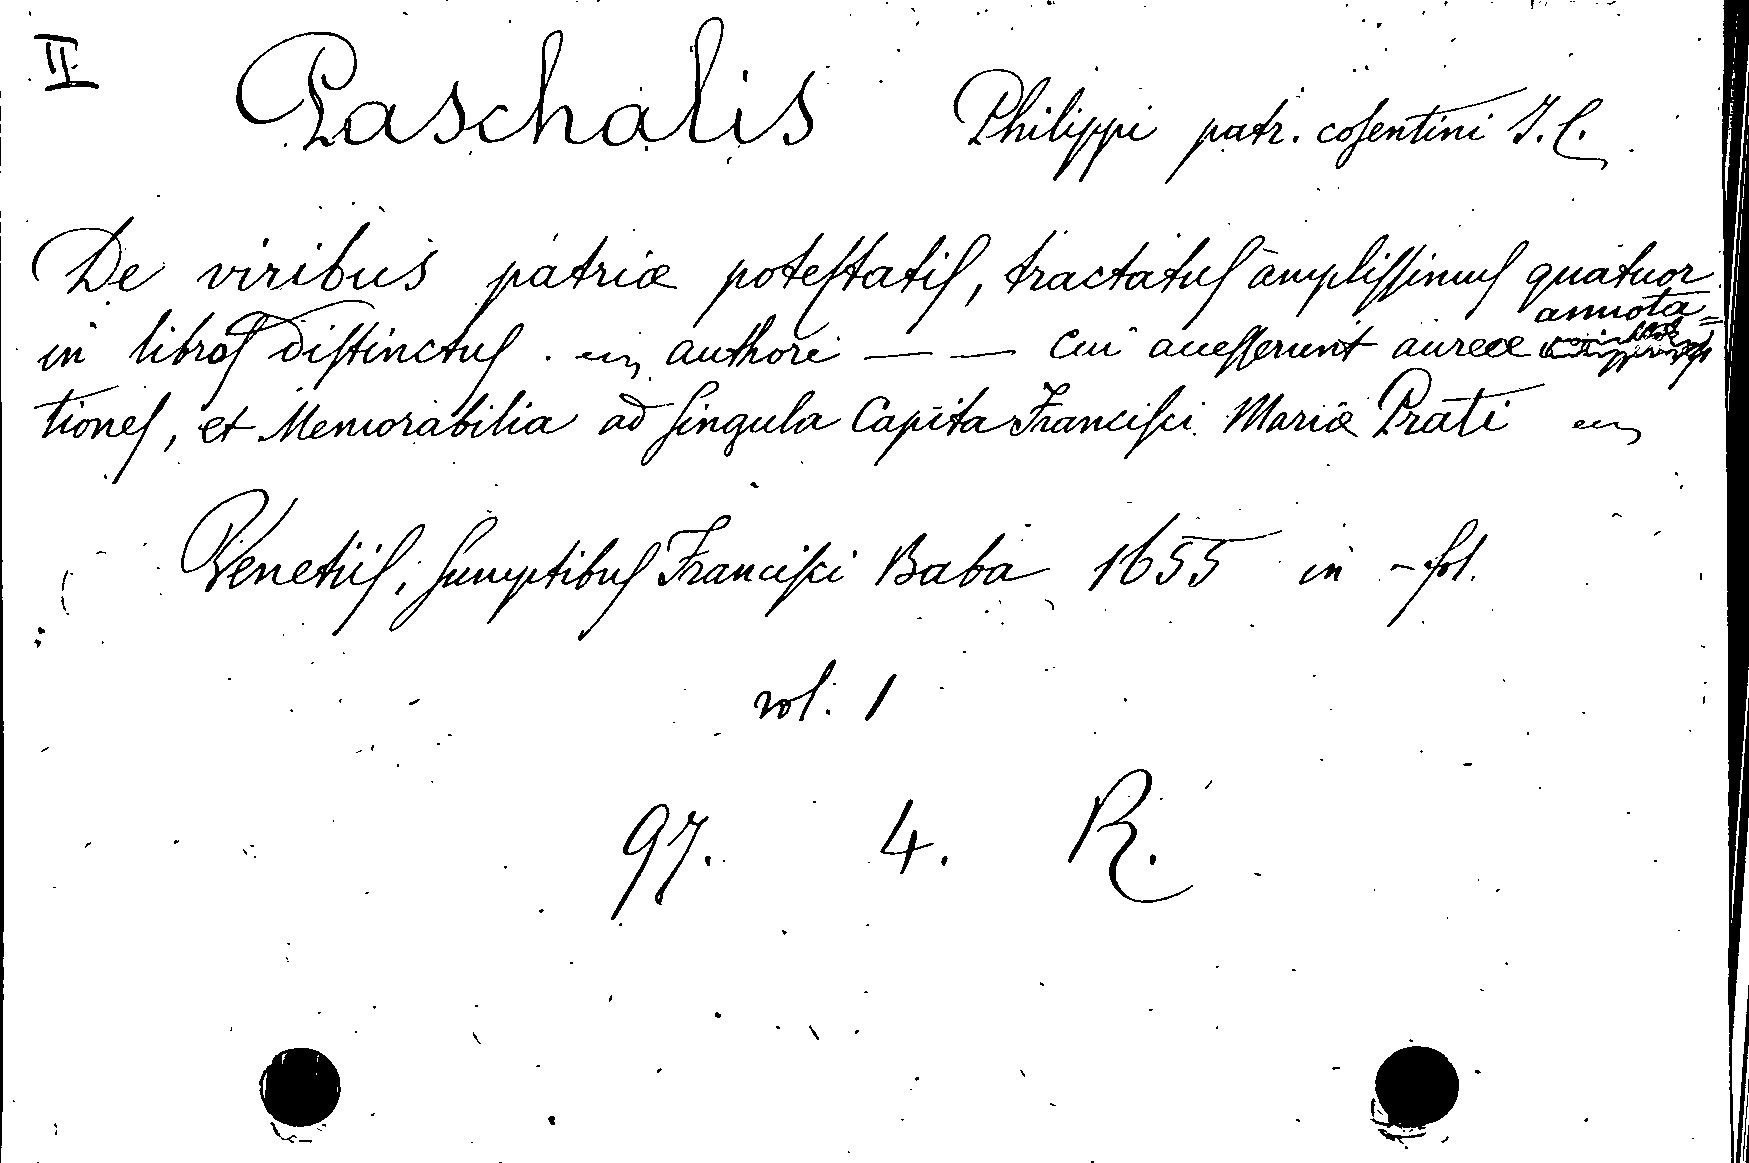 II
Paschalis Philippi patr. cosentini J. C.
De viribus patriæ potestatis, tractatus amplissimus quatuor
in libros distinctus. authore — — cui accesserunt aureæ annota=
tiones, et Memorabilia ad singula Capita Francisci Mariæ Prati
Venetiis, sumptibus Francisci Baba 1655 in - fol.
vol. 1
97. 4. R.